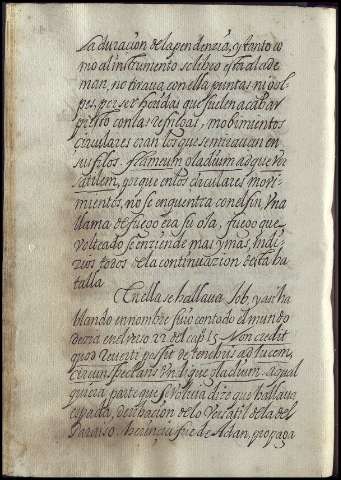 la duracion de la pendenzia, y tanto co
mo al instrumento se le dio esta al ade
man, no tiraua con ella puntas ni gol-
pes, por ser heridas que suelen acabar
presto con las refriegas, mobimientos
circulares eran los que sentreauan en
sus filos. flameum gladium adque ver
satilem, porque en los circulares movi-
mientos, no se enquentra con el fin, Vna
llama de fuego era su ola, fuego que
volteado se enziende mas y mas, Indi-
zios todos de la continuazion desta ba
talla
En ella se hallaua Job, y asi ha
blando en nombre suio con todo el mundo
dezia en el verso 22 del cap 15 Non credit
quod reverti possit de tenebris ad lucem,
circunspectans vndique gladium. A qual
quiera parte que se voluia dize que hallaua
espada, de lo Versatil de la del
Paraiso. Herencia fue de Adan, propaga